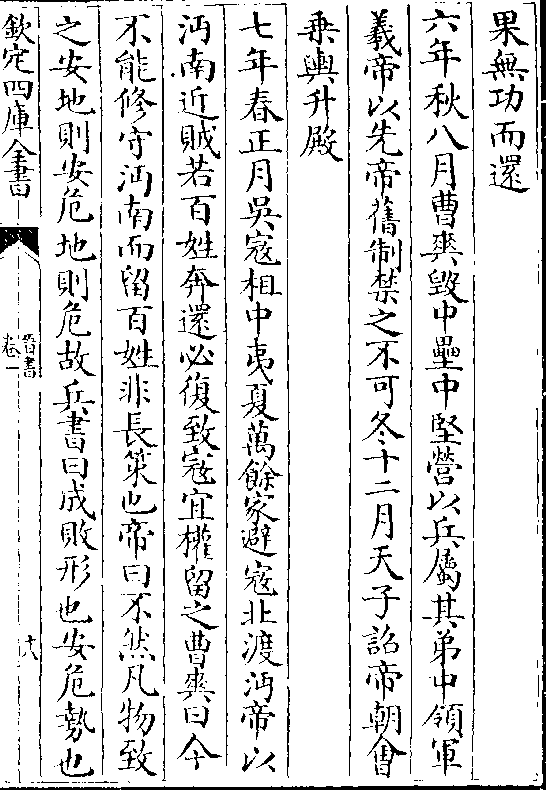 果無功而還
六年秋八月曹爽毀中壘中堅營以兵屬其弟中領軍
羲帝以先帝舊制禁之不可冬十二月天子詔帝朝會
乗輿升殿
七年春正月吳寇柤中夷夏萬餘家避寇北渡沔帝以
沔南近賊若百姓奔還必復致寇宜權留之曹爽曰今
不能修守沔南而留百姓非長策也帝曰不然凡物致
之安地則安危地則危故兵書曰成敗形也安危勢也
欽定四庫全書
晉書
卷一
十八